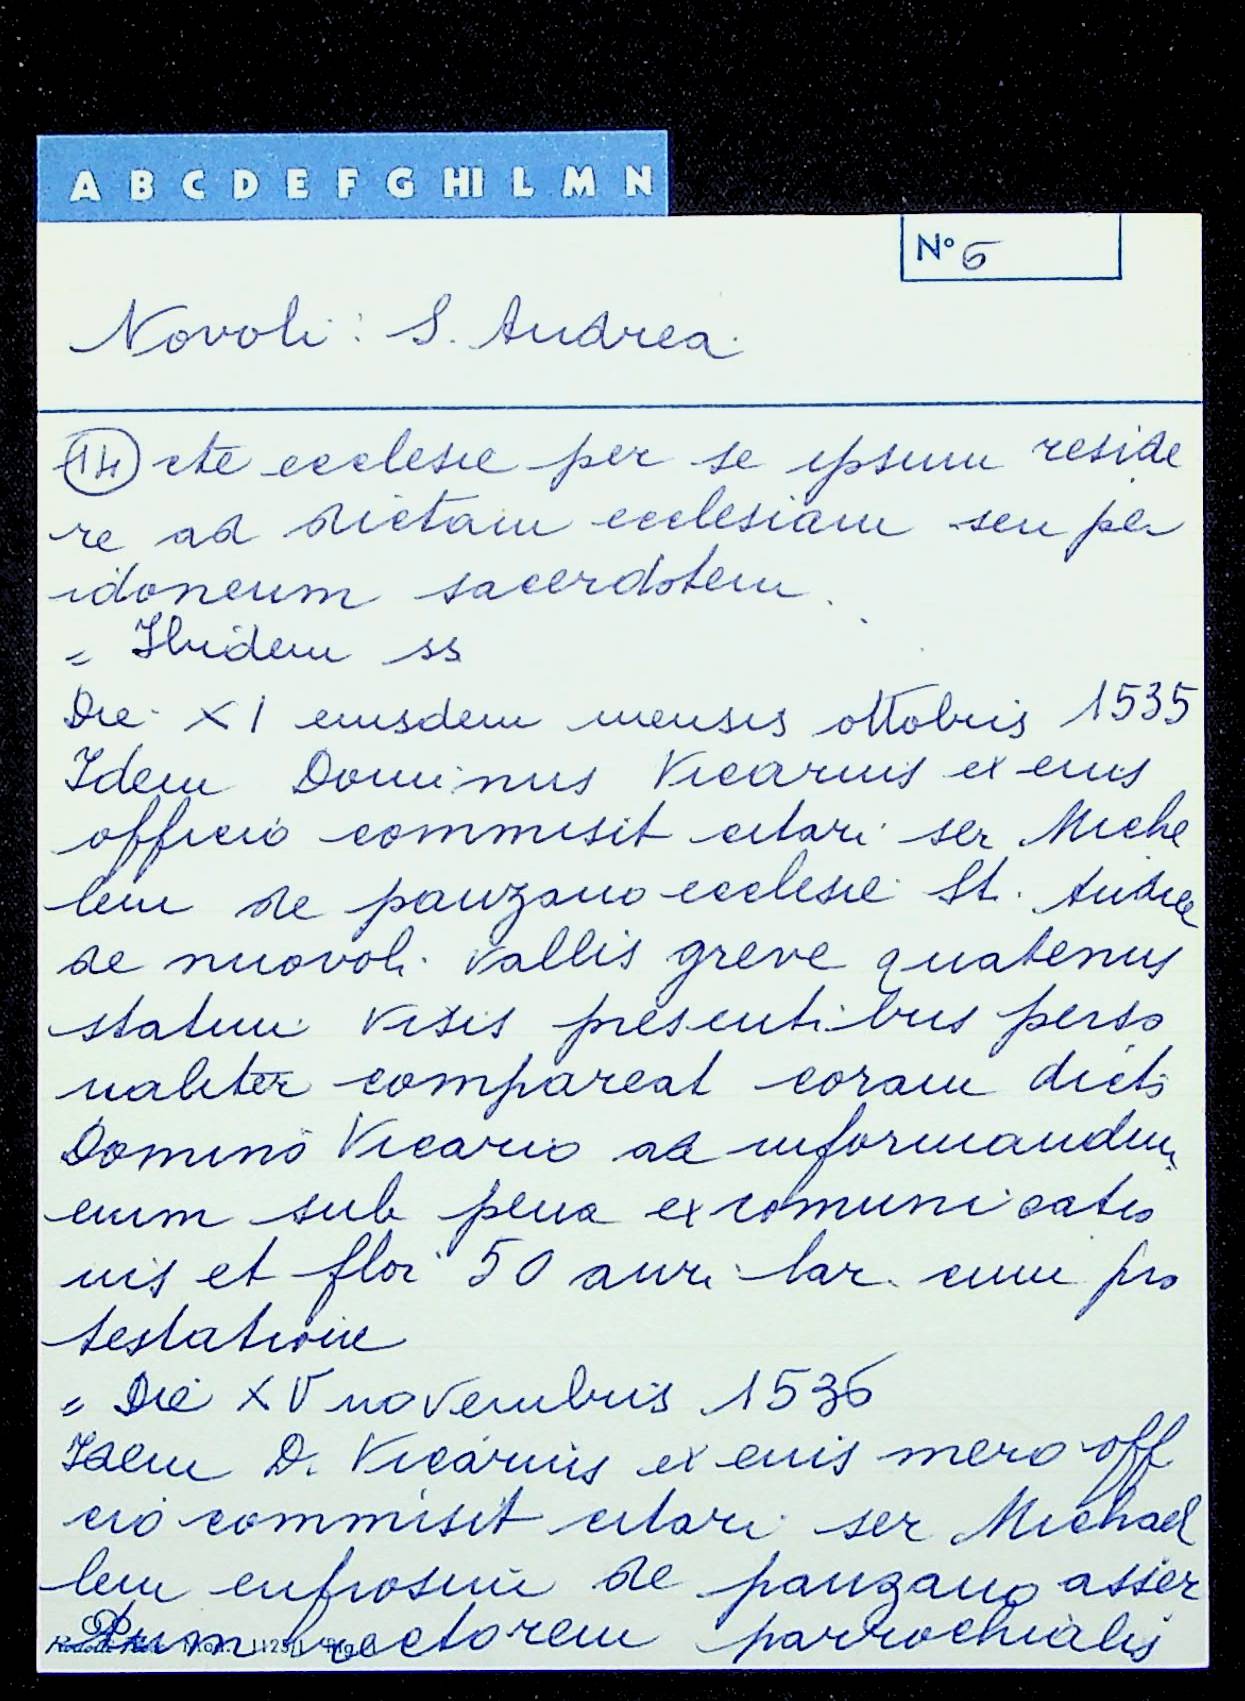 A B C D E F G HI L M N
N° 6
Novoli: S. Andrea
14 cte ecclesie per se ipsum reside
re ad dictam ecclesiam seu per
idoneum sacerdotem.
= Ibidem ss
Die XI eiusdem mensis ottobris 1535
Idem Dominus Vicarius ex eius
officio commisit citari ser Miche
lem de panzano ecclesie St. Andree
de nuovoli vallis greve quatenus
statim visis presentibus perso
naliter compareat coram dicto
Domino Vicario ad informandum
eum sub pena excomunicatio
nis et flor 50 auri lar. cum pro
testatione
= Die XV novembris 1536
Idem D. Vicarius ex eius mero off
cio commisit citari ser Michael
lem eufrosini de panzano asser
tum rectorem parrochialis